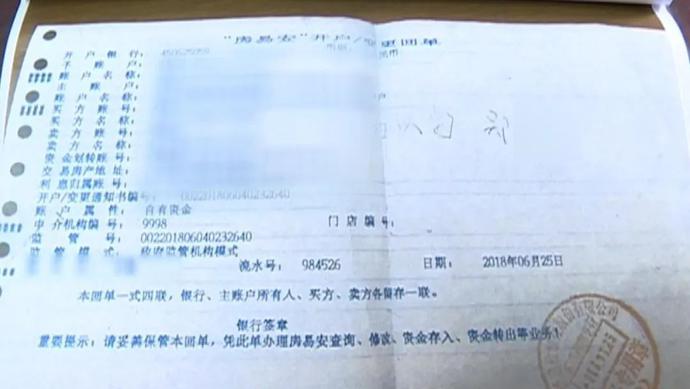 “房易安”开户/变更回单
开户银行：
子账户：
账户名称：
主账户：
账户名称：
买方账号：
买方名称：
卖方账号：
卖方名称：
资金划转账号：
交易房产地址：
利息归属账号：
开户/变更通知书编号：002201806040232640
账户属性：自有资金
中介机构编号：9998 门店编号：
监管号：002201806040232640
监管模式：政府监管机构模式
流水号：984526 日期：2018年06月25日
本回单一式四联，银行、主账户所有人、买方、卖方各留存一联。
银行签章
重要提示：请妥善保管本回单，凭此单办理房易安查询、修改、资金存入、资金转出等业务！